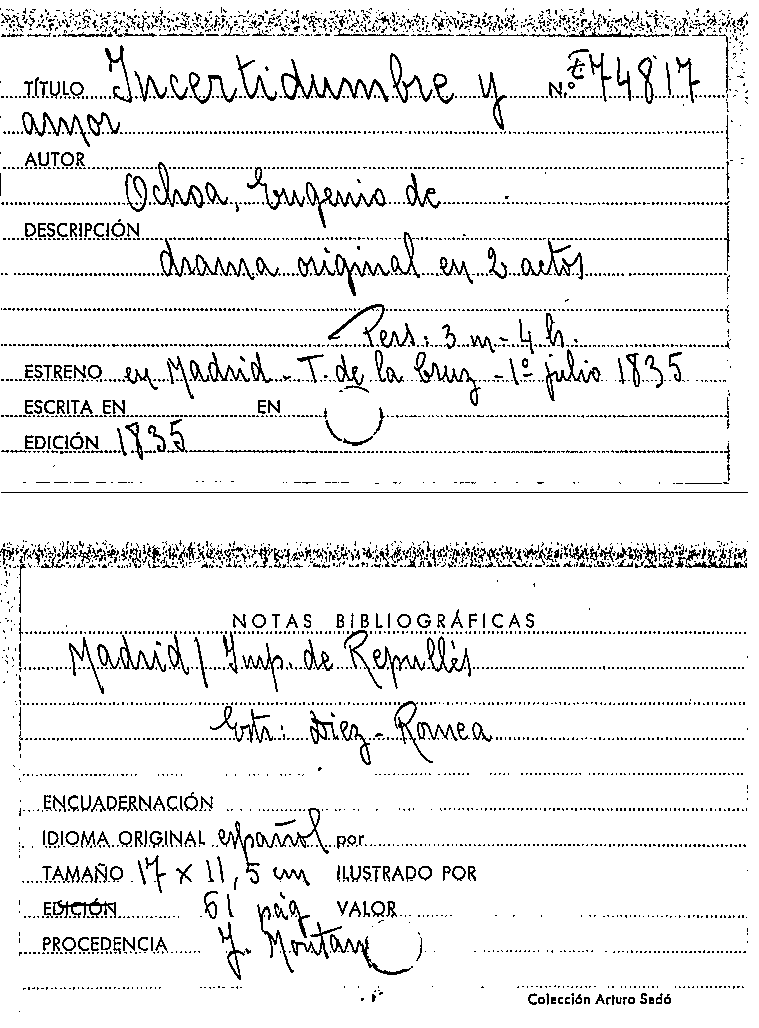 TÍTULO Incertidumbre y N.º E74817
amor
AUTOR
Ochoa, Eugenio de
DESCRIPCIÓN
drama original en 2 actos
Pers: 3 m - 4 h.
ESTRENO en Madrid - T. de la Cruz - 1º julio 1835
ESCRITA EN EN
EDICIÓN 1835
NOTAS BIBLIOGRÁFICAS
Madrid / Imp. de Repullés
Estr: Diez - Romea
ENCUADERNACIÓN
IDIOMA ORIGINAL español por
TAMAÑO 17 x 11,5 cm ILUSTRADO POR
EDICIÓN 61 pág VALOR
PROCEDENCIA J.
Colección Arturo Sedó